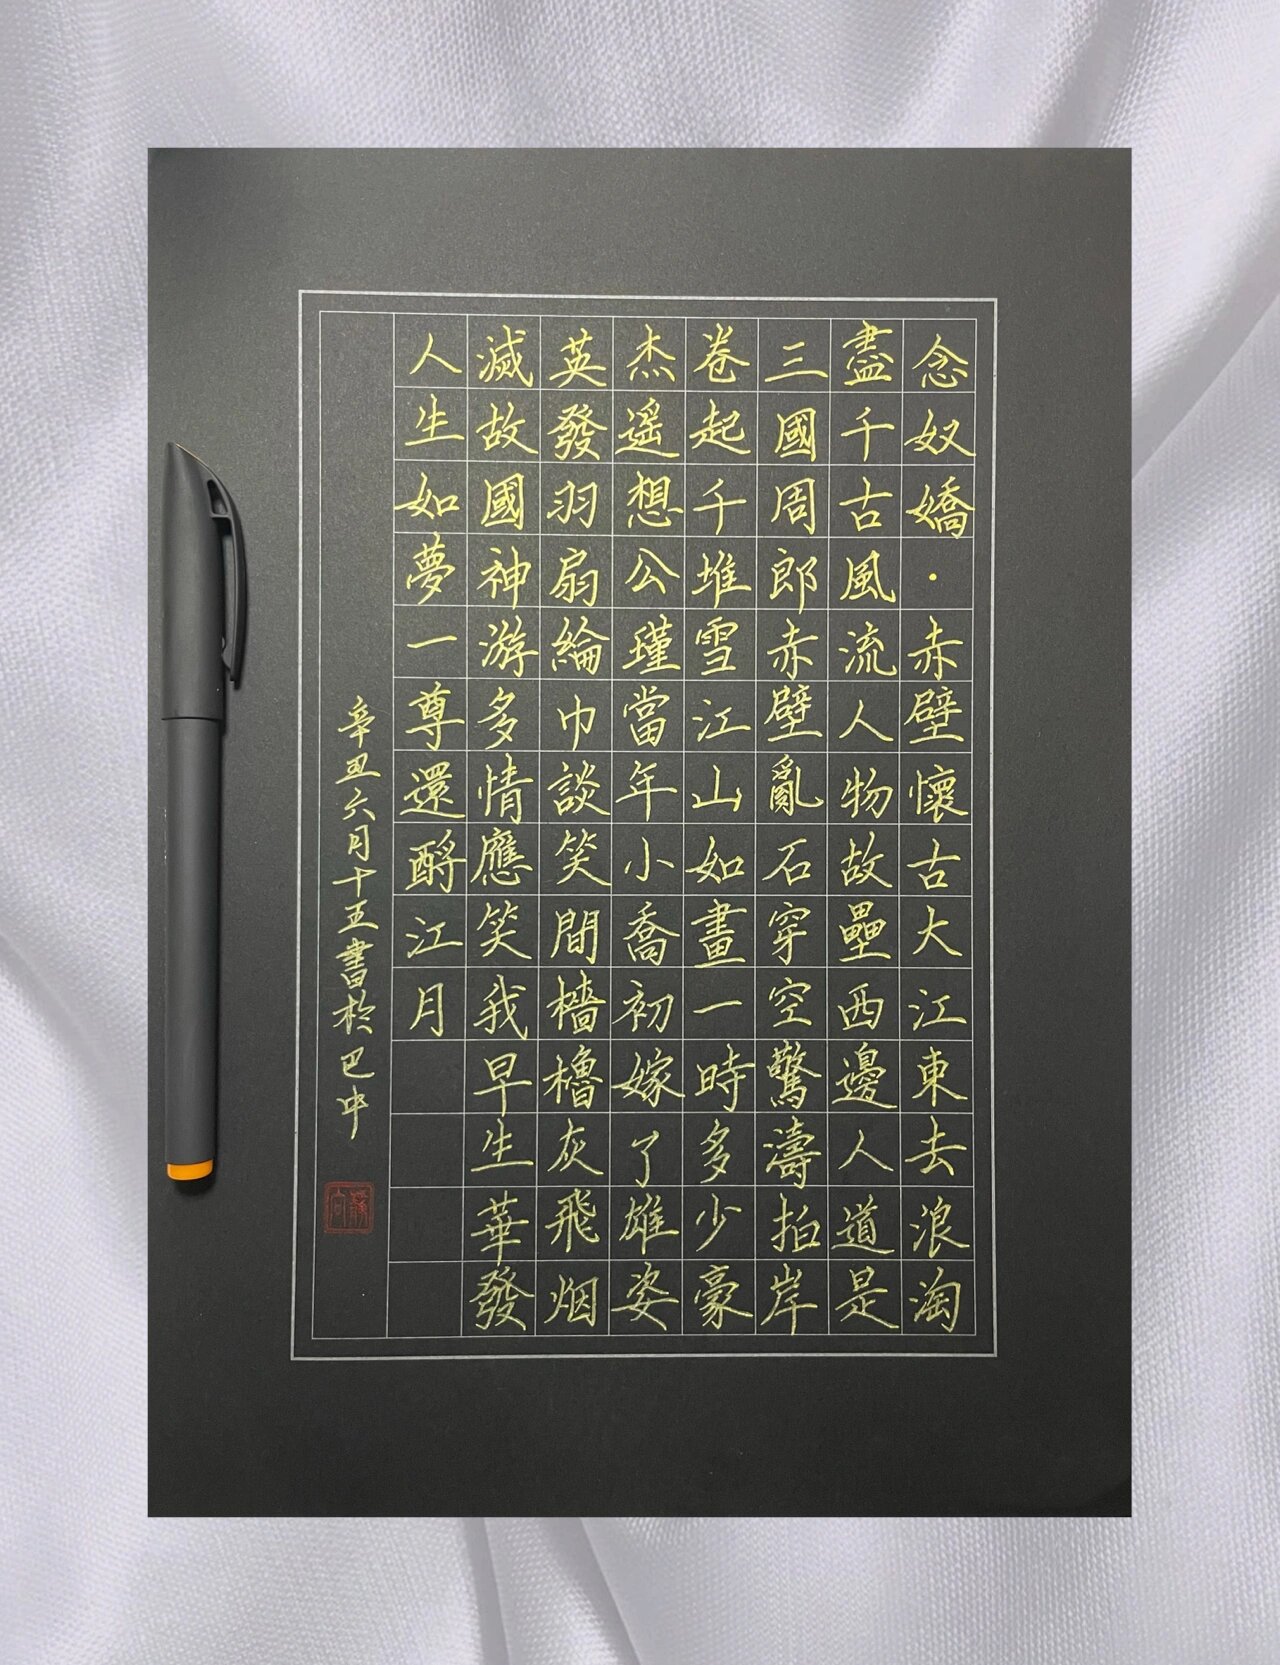 念奴嬌·赤壁懷古大江東去浪淘
盡千古風流人物故壘西邊人道是
三國周郎赤壁亂石穿空驚濤拍岸
卷起千堆雪江山如畫一時多少豪
杰遥想公瑾當年小喬初嫁了雄姿
英發羽扇綸巾談笑間檣櫓灰飛烟
滅故國神游多情應笑我早生華發
人生如夢一尊還酹江月
辛丑六月十五書於巴中